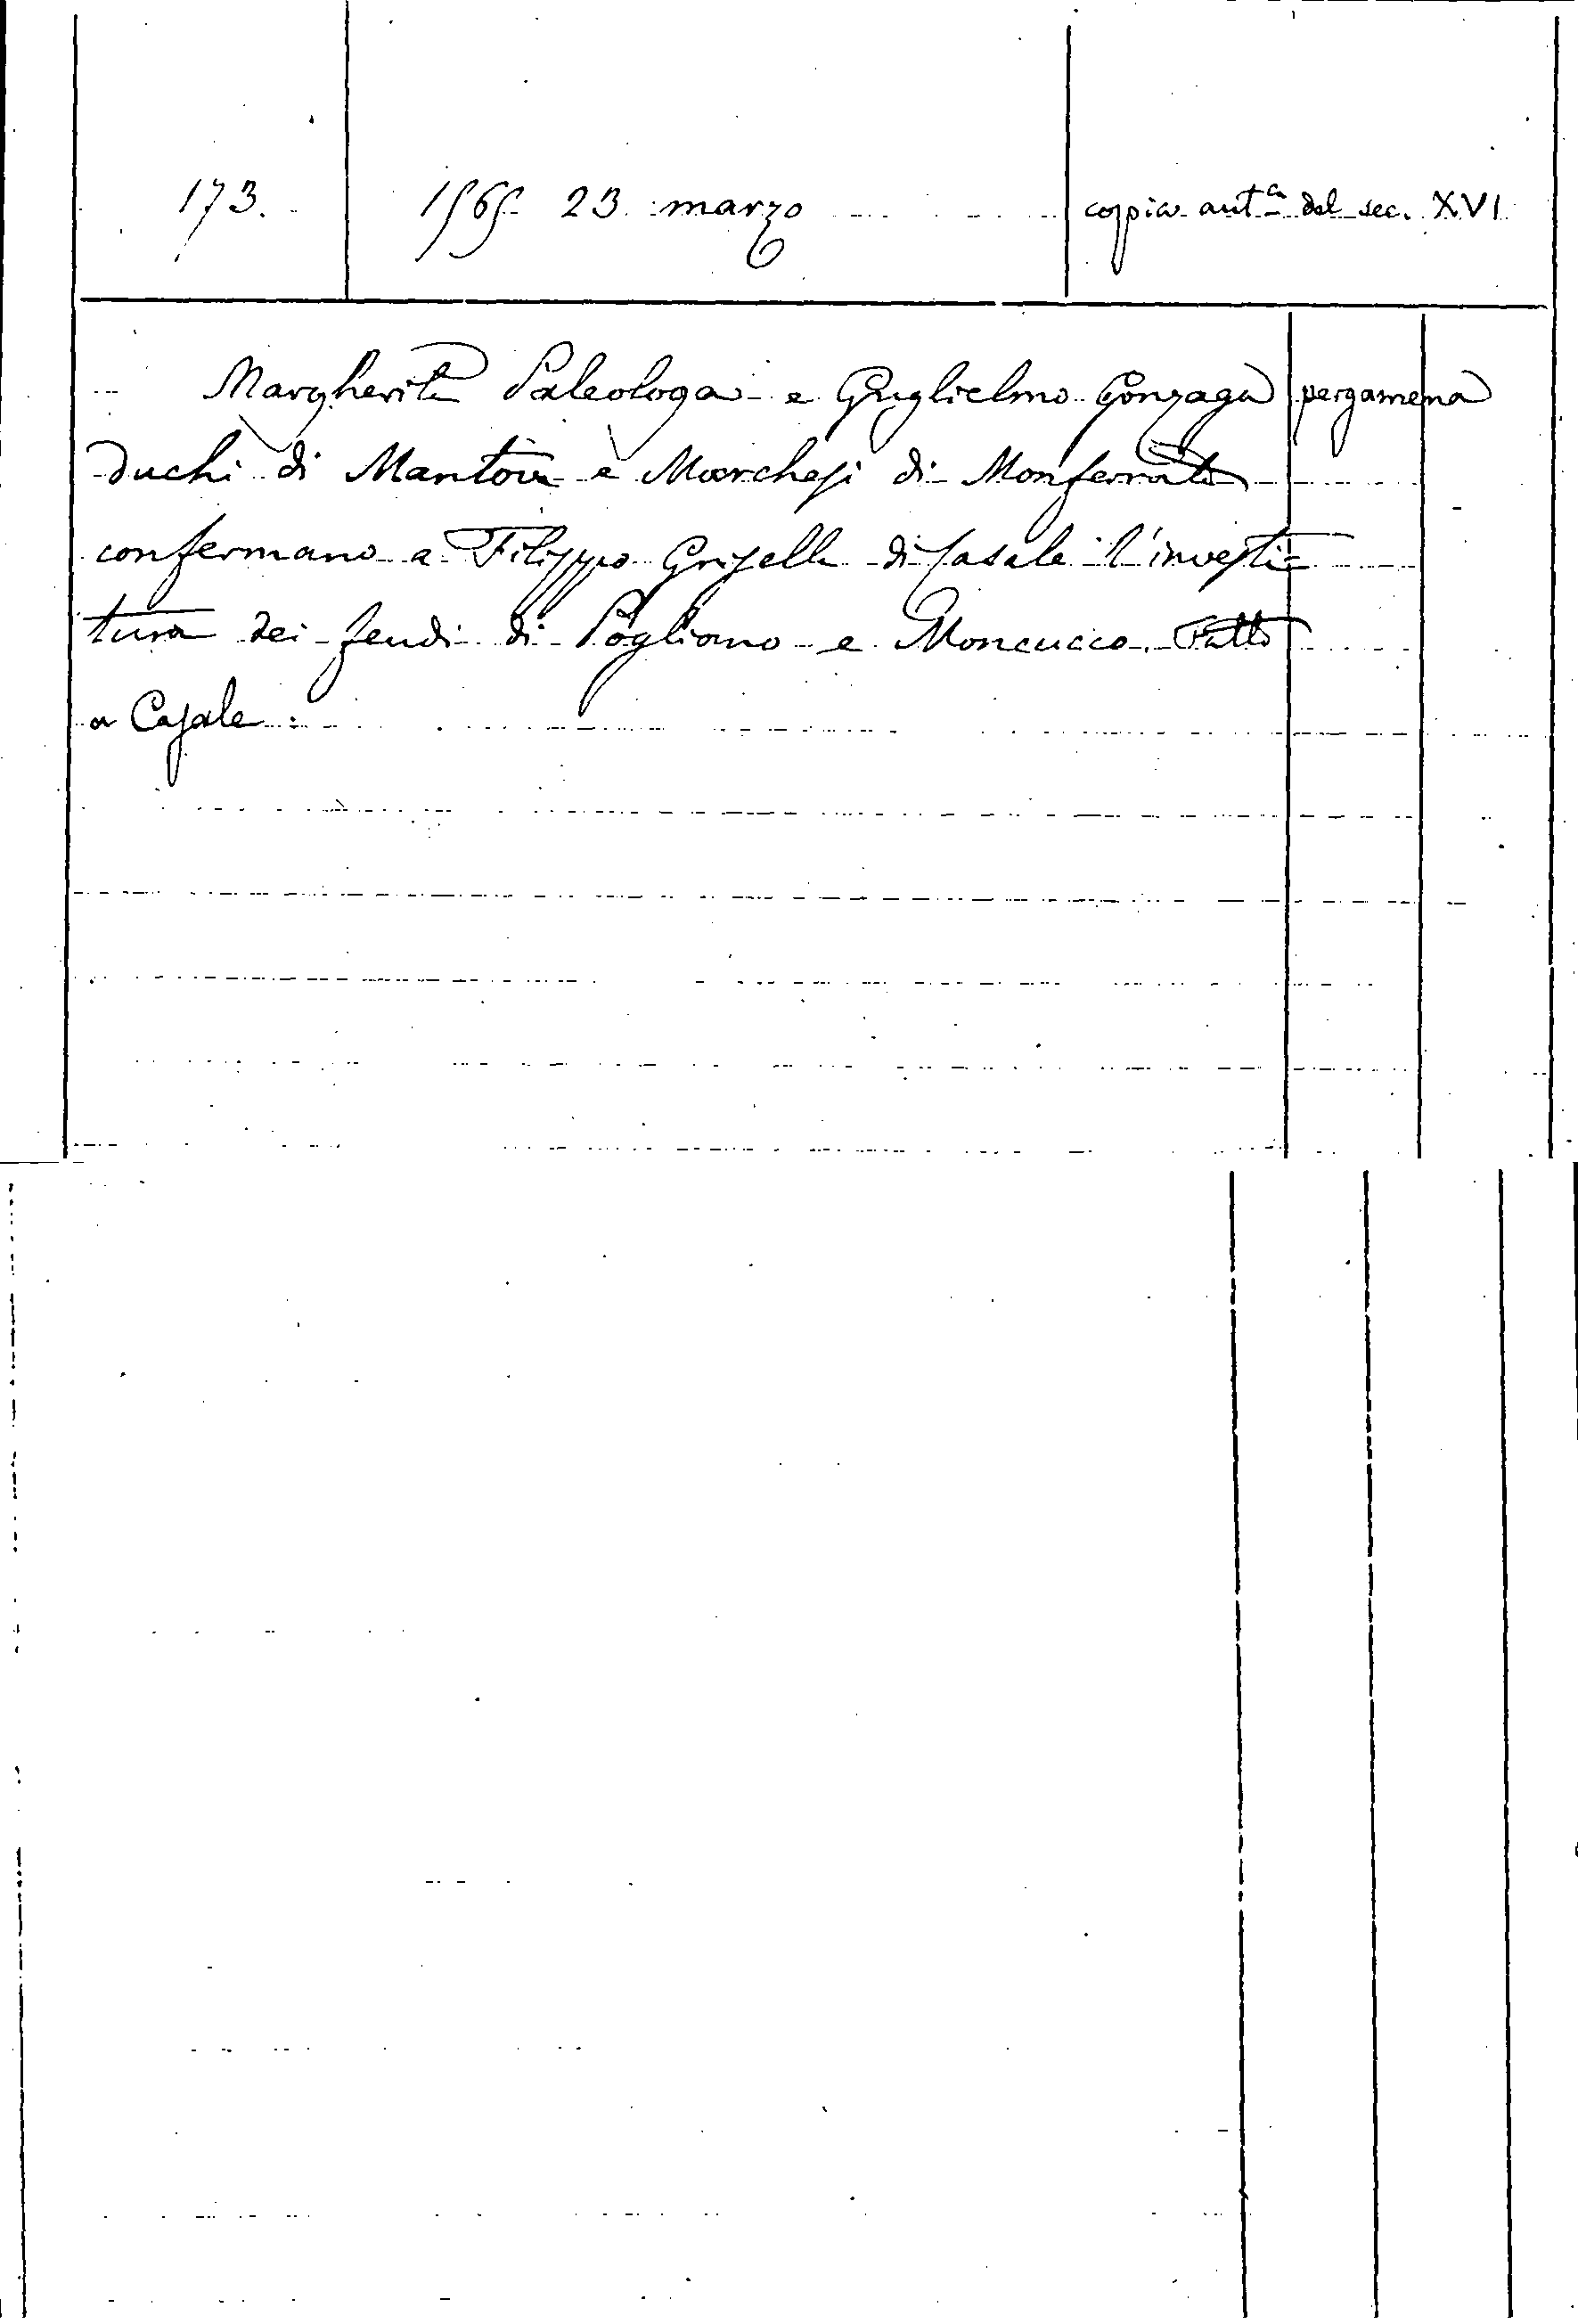 173.
1565 23 marzo
coppia aut.ca del sec. XVI
Margherita Paleologa e Guglielmo Gonzaga
pergamena
duchi di Mantova e Marchesi di Monferrato
confermano a Filippo Grisella di Casale l'investi-
tura dei feudi di Pogliano e Moncucco. Fatto
a Casale.